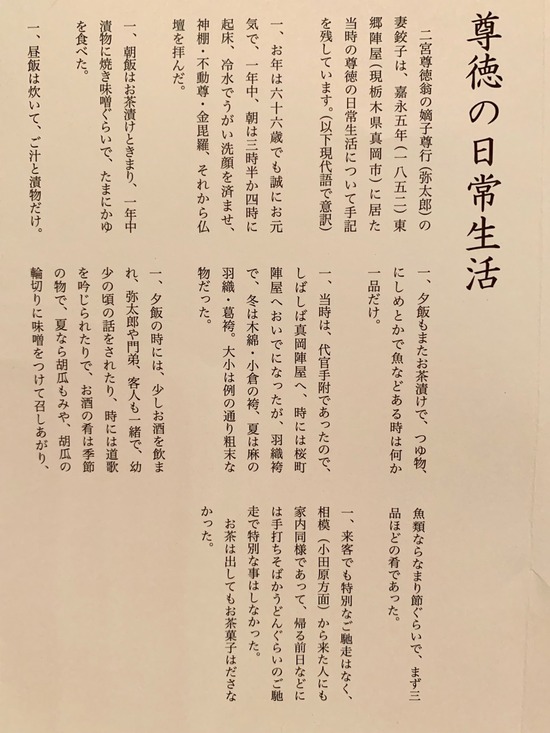 尊徳の日常生活
二宮尊徳翁の嫡子尊行（弥太郎）の
妻鉸子は、嘉永五年（一八五二）東
郷陣屋（現栃木県真岡市）に居た
当時の尊徳の日常生活について手記
を残しています。（以下現代語で意訳）
一、お年は六十六歳でも誠にお元
気で、一年中、朝は三時半か四時に
起床、冷水でうがい洗顔を済ませ、
神棚・不動尊・金毘羅、それから仏
壇を拝んだ。
一、朝飯はお茶漬けときまり、一年中
漬物に焼き味噌ぐらいで、たまにかゆ
を食べた。
一、昼飯は炊いて、ご汁と漬物だけ。
一、夕飯もまたお茶漬けで、つゆ物、
にしめとかで魚などある時は何か
一品だけ。
一、当時は、代官手附であったので、
しばしば真岡陣屋へ、時には桜町
陣屋へおいでになったが、羽織袴
で、冬は木綿・小倉の袴、夏は麻の
羽織・葛袴。大小は例の通り粗末な
物だった。
一、夕飯の時には、少しお酒を飲ま
れ、弥太郎や門弟、客人も一緒で、幼
少の頃の話をされたり、時には道歌
を吟じられたりで、お酒の肴は季節
の物で、夏なら胡瓜もみや、胡瓜の
輪切りに味噌をつけて召しあがり、
魚類ならなまり節ぐらいで、まず三
品ほどの肴であった。
一、来客でも特別なご馳走はなく、
相模（小田原方面）から来た人にも
家内同様であって、帰る前日などに
は手打ちそばかうどんぐらいのご馳
走で特別な事はしなかった。
お茶は出してもお茶菓子はださな
かった。